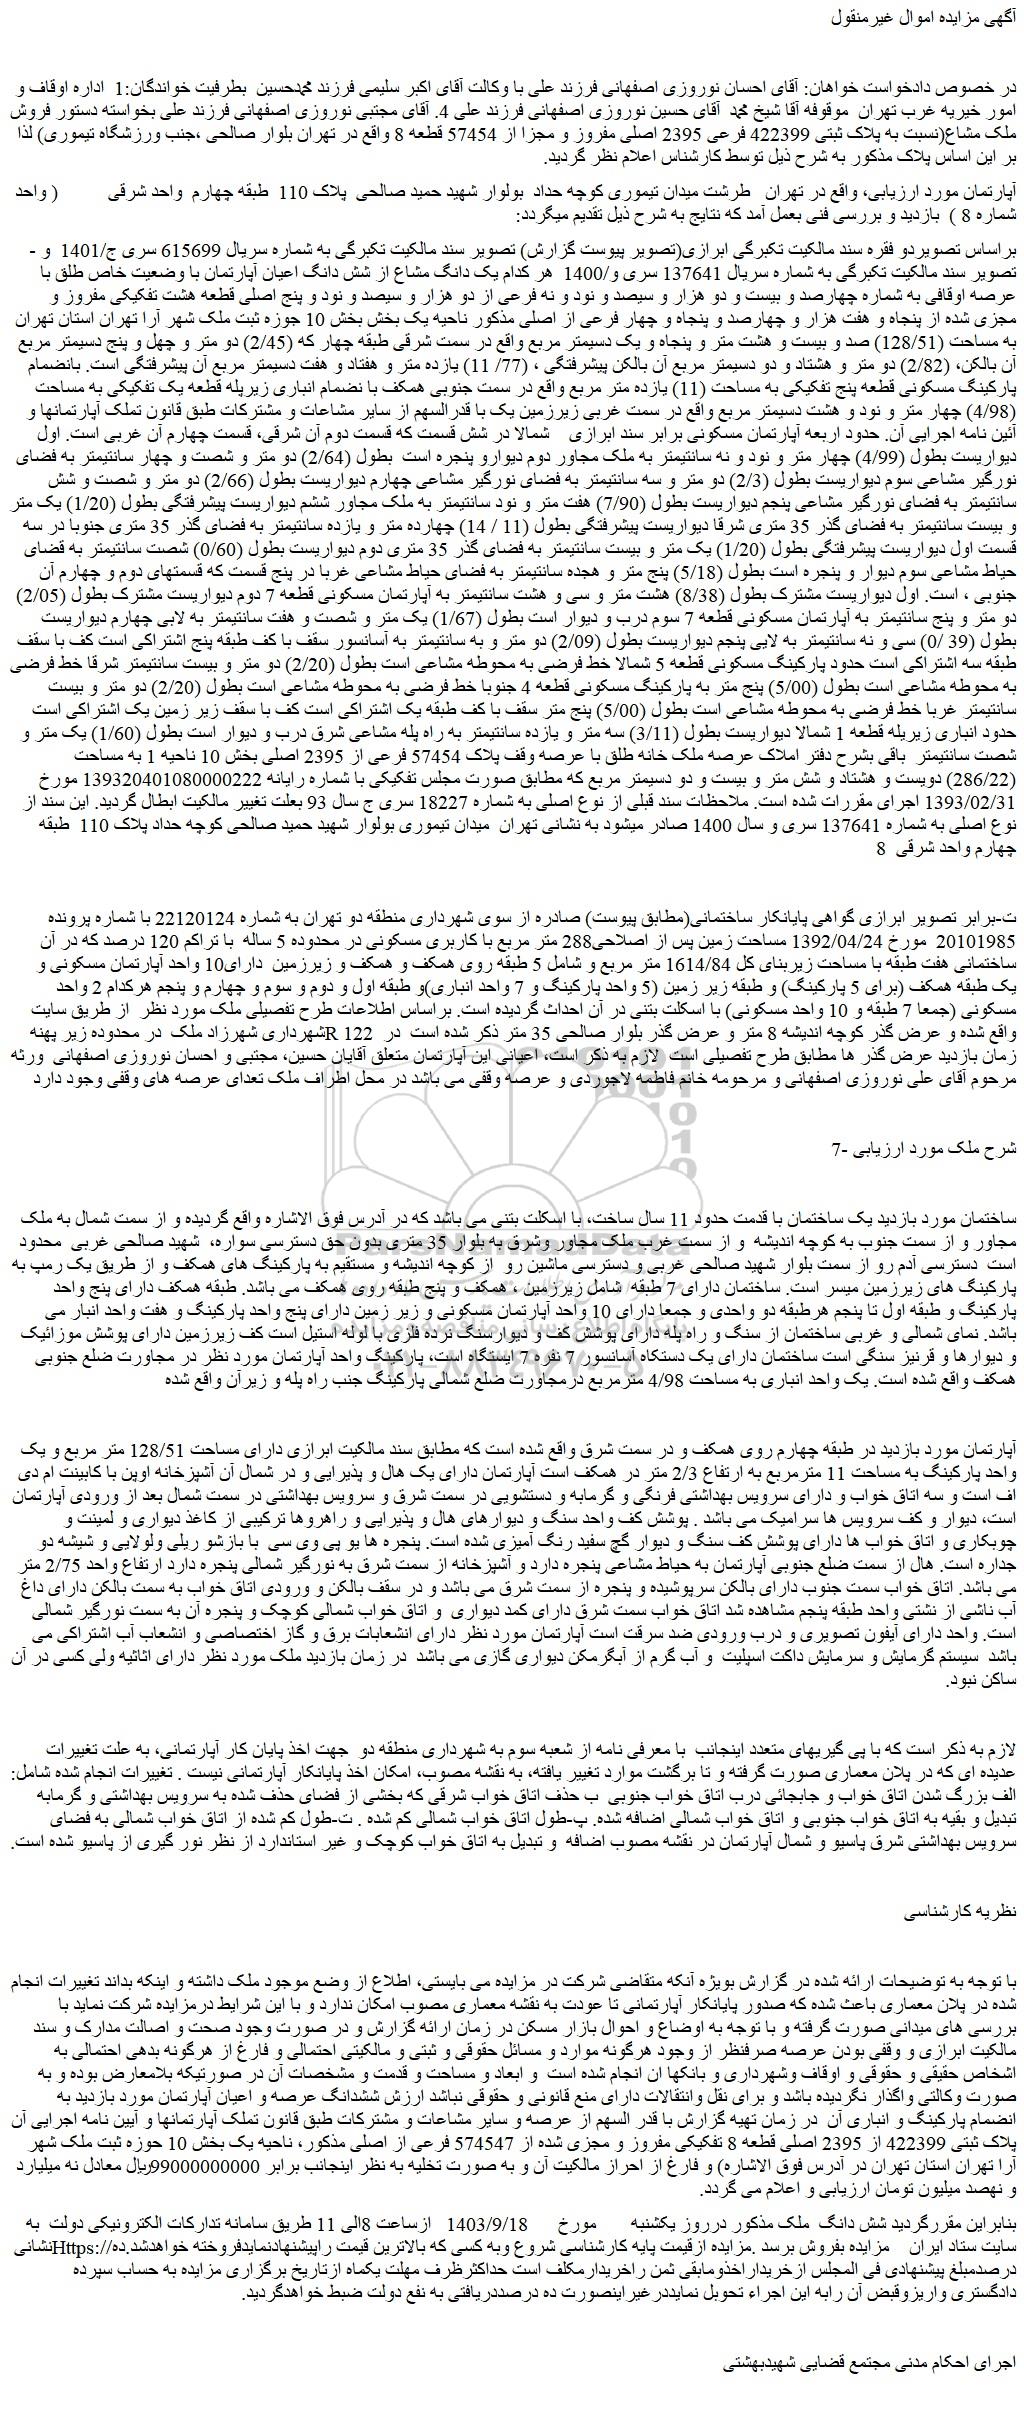 آگهی مزایده اموال غیرمنقول
در خصوص دادخواست خواهان: آقای احسان نوروزی اصفهانی فرزند علی با وکالت آقای اکبر سلیمی فرزند محمدحسین بطرفیت خواندگان:1 اداره اوقاف و
امور خیریه غرب تهران موقوفه آقا شیخ محمد آقای حسین نوروزی اصفهانی فرزند علی 4. آقای مجتبی نوروزی اصفهانی فرزند علی بخواسته دستور فروش
ملک مشاع(نسبت به پلاک ثبتی 422399 فرعی 2395 اصلی مفروز و مجزا از 57454 قطعه 8 واقع در تهران بلوار صالحی ،جنب ورزشگاه تیموری) لذا
بر این اساس پلاک مذکور به شرح ذیل توسط کارشناس اعلام نظر گردید.
آپارتمان مورد ارزیابی، واقع در تهران طرشت میدان تیموری کوچه حداد بولوار شهید حمید صالحی پلاک 110 طبقه چهارم واحد شرقی ( واحد
شماره 8 ) بازدید و بررسی فنی بعمل آمد که نتایج به شرح ذیل تقدیم میگردد:
براساس تصویردو فقره سند مالکیت تکبرگی ابرازی(تصویر پیوست گزارش) تصویر سند مالکیت تکبرگی به شماره سریال 615699 سری ج/1401 و -
تصویر سند مالکیت تکبرگی به شماره سریال 137641 سری و/1400 هر کدام یک دانگ مشاع از شش دانگ اعیان آپارتمان با وضعیت خاص طلق با
عرصه اوقافی به شماره چهارصد و بیست و دو هزار و سیصد و نود و نه فرعی از دو هزار و سیصد و نود و پنج اصلی قطعه هشت تفکیکی مفروز و
مجزی شده از پنجاه و هفت هزار و چهارصد و پنجاه و چهار فرعی از اصلی مذکور ناحیه یک بخش بخش 10 جوزه ثبت ملک شهر آرا تهران استان تهران
به مساحت (128/51) صد و بیست و هشت متر و پنجاه و یک دسیمتر مربع واقع در سمت شرقی طبقه چهار که (2/45) دو متر و چهل و پنج دسیمتر مربع
آن بالکن، (2/82) دو متر و هشتاد و دو دسیمتر مربع آن بالکن پیشرفتگی ، (77/ 11) یازده متر و هفتاد و هفت دسیمتر مربع آن پیشرفتگی است. بانضمام
پارکینگ مسکونی قطعه پنج تفکیکی به مساحت (11) یازده متر مربع واقع در سمت جنوبی همکف با نضمام انباری زیرپله قطعه یک تفکیکی به مساحت
(4/98) چهار متر و نود و هشت دسیمتر مربع واقع در سمت غربی زیرزمین یک با قدرالسهم از سایر مشاعات و مشترکات طبق قانون تملک آپارتمانها و
آئین نامه اجرایی آن. حدود اربعه آپارتمان مسکونی برابر سند ابرازی شمالا در شش قسمت که قسمت دوم آن شرقی، قسمت چهارم آن غربی است. اول
دیواریست بطول (4/99) چهار متر و نود و نه سانتیمتر به ملک مجاور دوم دیوارو پنجره است بطول (2/64) دو متر و شصت و چهار سانتیمتر به فضای
نورگیر مشاعی سوم دیواریست بطول (2/3) دو متر و سه سانتیمتر به فضای نورگیر مشاعی چهارم دیواریست بطول (2/66) دو متر و شصت و شش
سانتیمتر به فضای نورگیر مشاعی پنجم دیواریست بطول (7/90) هفت متر و نود سانتیمتر به ملک مجاور ششم دیواریست پیشرفتگی بطول (1/20) یک متر
و بیست سانتیمتر به فضای گذر 35 متری شرقا دیواریست پیشرفتگی بطول (11 / 14) چهارده متر و یازده سانتیمتر به فضای گذر 35 متری جنوبا در سه
قسمت اول دیواریست پیشرفتگی بطول (1/20) یک متر و بیست سانتیمتر به فضای گذر 35 متری دوم دیواریست بطول (0/60) شصت سانتیمتر به قضای
حیاط مشاعی سوم دیوار و پنجره است بطول (5/18) پنج متر و هجده سانتیمتر به فضای حیاط مشاعی غربا در پنج قسمت که قسمتهای دوم و چهارم آن
جنوبی ، است. اول دیواریست مشترک بطول (8/38) هشت متر و سی و هشت سانتیمتر به آپارتمان مسکونی قطعه 7 دوم دیواریست مشترک بطول (2/05)
دو متر و پنج سانتیمتر به آپارتمان مسکونی قطعه 7 سوم درب و دیوار است بطول (1/67) یک متر و شصت و هفت سانتیمتر به لابی چهارم دیواریست
بطول (39 /0) سی و نه سانتیمتر به لابی پنجم دیواریست بطول (2/09) دو متر و به سانتیمتر به آسانسور سقف با کف طبقه پنج اشتراکی است کف با سقف
طبقه سه اشتراکی است حدود پارکینگ مسکونی قطعه 5 شمالا خط فرضی به محوطه مشاعی است بطول (2/20) دو متر و بیست سانتیمتر شرقا خط فرضی
به محوطه مشاعی است بطول (5/00) پنج متر به پارکینگ مسکونی قطعه 4 جنوبا خط فرضی به محوطه مشاعی است بطول (2/20) دو متر و بیست
سانتیمتر غربا خط فرضی به محوطه مشاعی است بطول (5/00) پنج متر سقف با کف طبقه یک اشتراکی است کف با سقف زیر زمین یک اشتراکی است
حدود انباری زیرپله قطعه 1 شمالا دیواریست بطول (3/11) سه متر و یازده سانتیمتر به راه پله مشاعی شرق درب و دیوار است بطول (1/60) یک متر و
شصت سانتیمتر باقی بشرح دفتر املاک عرصه ملک خانه طلق با عرصه وقف پلاک 57454 فرعی از 2395 اصلی بخش 10 ناحیه 1 به مساحت
(286/22) دویست و هشتاد و شش متر و بیست و دو دسیمتر مربع که مطابق صورت مجلس تفکیکی با شماره رایانه 139320401080000222 مورخ
1393/02/31 اجرای مقررات شده است. ملاحظات سند قبلی از نوع اصلی به شماره 18227 سری ج سال 93 بعلت تغییر مالکیت ابطال گردید. این سند از
نوع اصلی به شماره 137641 سری و سال 1400 صادر میشود به نشانی تهران میدان تیموری بولوار شهید حمید صالحی کوچه حداد پلاک 110 طبقه
چهارم واحد شرقی 8
ت-برابر تصویر ابرازی گواهی پایانکار ساختمانی(مطابق پیوست) صادره از سوی شهرداری منطقه دو تهران به شماره 22120124 با شماره پرونده
20101985 مورخ 1392/04/24 مساحت زمین پس از اصلاحی288 متر مربع با کاربری مسکونی در محدوده 5 ساله با تراکم 120 درصد که در آن
ساختمانی هفت طبقه با مساحت زیربنای کل 1614/84 متر مربع و شامل 5 طبقه روی همکف و همکف و زیرزمین دارای10 واحد آپارتمان مسکونی و
یک طبقه همکف (برای 5 پارکینگ) و طبقه زیر زمین (5 واحد پارکینگ و 7 واحد انباری)و طبقه اول و دوم و سوم و چهارم و پنجم هرکدام 2 واحد
مسکونی (جمعا 7 طبقه و 10 واحد مسکونی) با اسکلت بتنی در آن احداث گردیده است. براساس اطلاعات طرح تفصیلی ملک مورد نظر از طریق سایت
شهرداری شهرزاد ملک در محدوده زیر پهنه R 122 واقع شده و عرض گذر کوچه اندیشه 8 متر و عرض گذر بلوار صالحی 35 متر ذکر شده است در
زمان بازدید عرض گذر ها مطابق طرح تفصیلی است لازم به ذکر است، اعیانی این آپارتمان متعلق آقایان حسین، مجتبی و احسان نوروزی اصفهانی ورثه
مرحوم آقای علی نوروزی اصفهانی و مرحومه خانم فاطمه لاجوردی و عرصه وقفی می باشد در محل اطراف ملک تعدای عرصه های وقفی وجود دارد
شرح ملک مورد ارزیابی -7
ساختمان مورد بازدید یک ساختمان با قدمت حدود 11 سال ساخت، با اسکلت بتنی می باشد که در آدرس فوق الاشاره واقع گردیده و از سمت شمال به ملک
مجاور و از سمت جنوب به کوچه اندیشه و از سمت غرب ملک مجاور وشرق به بلوار 35 متری بدون حق دسترسی سواره، شهید صالحی غربی محدود
است دسترسی آدم رو از سمت بلوار شهید صالحی غربی و دسترسی ماشین رو از کوچه اندیشه و مستقیم به پارکینگ های همکف و از طریق یک رمپ به
پارکینگ های زیرزمین میسر است. ساختمان دارای 7 طبقه شامل زیرزمین ، همکف و پنج طبقه روی همکف می باشد. طبقه همکف دارای پنج واحد
پارکینگ و طبقه اول تا پنجم هرطبقه دو واحدی و جمعا دارای 10 واحد آپارتمان مسکونی و زیر زمین دارای پنج واحد پارکینگ و هفت واحد انبار می
باشد. نمای شمالی و غربی ساختمان از سنگ و راه پله دارای پوشش کف و دیوارسنگ نرده فلزی با لوله استیل است کف زیرزمین دارای پوشش موزائیک
و دیوارها و قرنیز سنگی است ساختمان دارای یک دستگاه آسانسور 7 نفره 7 ایستگاه است، پارکینگ واحد آپارتمان مورد نظر در مجاورت ضلع جنوبی
همکف واقع شده است. یک واحد انباری به مساحت 4/98 مترمربع درمجاورت ضلع شمالی پارکینگ جنب راه پله و زیرآن واقع شده
آپارتمان مورد بازدید در طبقه چهارم روی همکف و در سمت شرق واقع شده است که مطابق سند مالکیت ابرازی دارای مساحت 128/51 متر مربع و یک
واحد پارکینگ به مساحت 11 مترمربع به ارتفاع 2/3 متر در همکف است آپارتمان دارای یک هال و پذیرایی و در شمال آن آشپزخانه اوپن با کابینت ام دی
اف است و سه اتاق خواب و دارای سرویس بهداشتی فرنگی و گرمابه و دستشویی در سمت شرق و سرویس بهداشتی در سمت شمال بعد از ورودی آپارتمان
است، دیوار و کف سرویس ها سرامیک می باشد . پوشش کف واحد سنگ و دیوارهای هال و پذیرایی و راهروها ترکیبی از کاغذ دیواری و لمینت و
چوبکاری و اتاق خواب ها دارای پوشش کف سنگ و دیوار گچ سفید رنگ آمیزی شده است. پنجره ها یو پی وی سی با بازشو ریلی ولولایی و شیشه دو
جداره است. هال از سمت ضلع جنوبی آپارتمان به حیاط مشاعی پنجره دارد و آشپزخانه از سمت شرق به نورگیر شمالی پنجره دارد ارتفاع واحد 2/75 متر
می باشد. اتاق خواب سمت جنوب دارای بالکن سرپوشیده و پنجره از سمت شرق می باشد و در سقف بالکن و ورودی اتاق خواب به سمت بالکن دارای داغ
آب ناشی از نشتی واحد طبقه پنجم مشاهده شد اتاق خواب سمت شرق دارای کمد دیواری و اتاق خواب شمالی کوچک و پنجره آن به سمت نورگیر شمالی
است. واحد دارای آیفون تصویری و درب ورودی ضد سرقت است آپارتمان مورد نظر دارای انشعابات برق و گاز اختصاصی و انشعاب آب اشتراکی می
باشد سیستم گرمایش و سرمایش داکت اسپلیت و آب گرم از آبگرمکن دیواری گازی می باشد در زمان بازدید ملک مورد نظر دارای اثاثیه ولی کسی در آن
ساکن نبود.
لازم به ذکر است که با پی گیریهای متعدد اینجانب با معرفی نامه از شعبه سوم به شهرداری منطقه دو جهت اخذ پایان کار آپارتمانی، به علت تغییرات
عدیده ای که در پلان معماری صورت گرفته و تا برگشت موارد تغییر یافته، به نقشه مصوب، امکان اخذ پایانکار آپارتمانی نیست . تغییرات انجام شده شامل:
الف بزرگ شدن اتاق خواب و جابجائی درب اتاق خواب جنوبی ب حذف اتاق خواب شرقی که بخشی از فضای حذف شده به سرویس بهداشتی و گرمابه
تبدیل و بقیه به اتاق خواب جنوبی و اتاق خواب شمالی اضافه شده. پ-طول اتاق خواب شمالی کم شده . ت-طول کم شده از اتاق خواب شمالی به فضای
سرویس بهداشتی شرق پاسیو و شمال آپارتمان در نقشه مصوب اضافه و تبدیل به اتاق خواب کوچک و غیر استاندارد از نظر نور گیری از پاسیو شده است.
نظریه کارشناسی
با توجه به توضیحات ارائه شده در گزارش بویژه آنکه متقاضی شرکت در مزایده می بایستی، اطلاع از وضع موجود ملک داشته و اینکه بداند تغییرات انجام
شده در پلان معماری باعث شده که صدور پایانکار آپارتمانی تا عودت به نقشه معماری مصوب امکان ندارد و با این شرایط درمزایده شرکت نماید با
بررسی های میدانی صورت گرفته و با توجه به اوضاع و احوال بازار مسکن در زمان ارائه گزارش و در صورت وجود صحت و اصالت مدارک و سند
مالکیت ابرازی و وقفی بودن عرصه صرفنظر از وجود هرگونه موارد و مسائل حقوقی و ثبتی و مالکیتی احتمالی و فارغ از هرگونه بدهی احتمالی به
اشخاص حقیقی و حقوقی و اوقاف وشهرداری و بانکها ان انجام شده است و ابعاد و مساحت و قدمت و مشخصات آن در صورتیکه بلامعارض بوده و به
صورت وکالتی واگذار نگردیده باشد و برای نقل وانتقالات دارای منع قانونی و حقوقی نباشد ارزش ششدانگ عرصه و اعیان آپارتمان مورد بازدید به
انضمام پارکینگ و انباری آن در زمان تهیه گزارش با قدر السهم از عرصه و سایر مشاعات و مشترکات طبق قانون تملک آپارتمانها و آیین نامه اجرایی آن
پلاک ثبتی 422399 از 2395 اصلی قطعه 8 تفکیکی مفروز و مجزی شده از 574547 فرعی از اصلی مذکور، ناحیه یک بخش 10 حوزه ثبت ملک شهر
آرا تهران استان تهران در آدرس فوق الاشاره) و فارغ از احراز مالکیت آن و به صورت تخلیه به نظر اینجانب برابر 99000000000ریال معادل نه میلیارد
و نهصد میلیون تومان ارزیابی و اعلام می گردد.
بنابراین مقررگردید شش دانگ ملک مذکور درروز یکشنبه مورخ 1403/9/18 ازساعت 8الی 11 طریق سامانه تدارکات الکترونیکی دولت به
نشانیHttps://سایت ستاد ایران مزایده بفروش برسد .مزایده ازقیمت پایه کارشناسی شروع وبه کسی که بالاترین قیمت راپیشنهادنمایدفروخته خواهدشد.ده
درصدمبلغ پیشنهادی فی المجلس ازخریداراخذومابقی ثمن راخریدارمکلف است حداکثرظرف مهلت یکماه ازتاریخ برگزاری مزایده به حساب سپرده
دادگستری واریزوقبض آن رابه این اجراء تحویل نمایددرغیراینصورت ده درصددریافتی به نفع دولت ضبط خواهدگردید.
اجرای احکام مدنی مجتمع قضایی شهیدبهشتی
ParsNamadData
پایگاه اطلاع رسانی مناقصه و مزایده
۰۲۱-۸۸۳۴۹۶۷۰-۵